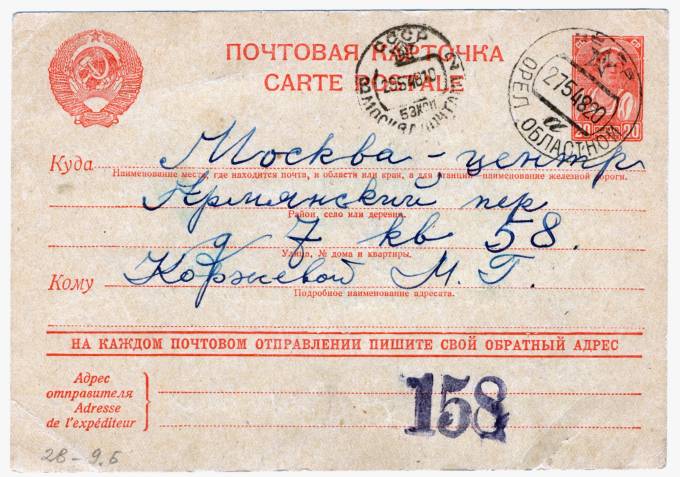 ПОЧТОВАЯ КАРТОЧКА
CARTE POSTALE
СССР
МОСКВА ПОЧТАМТ
2954810
ОРЕЛ ОБЛАСТНОЙ
2754820
а
20 20
Куда Москва - центр
Наименование места, где находится почта, и области или края, а для станций - наименование железной дороги.
Армянский пер
Район, село или деревня.
д 7 кв 58.
Улица, № дома и квартиры.
Кому Коржевой М. Г.
Подробное наименование адресата.
НА КАЖДОМ ПОЧТОВОМ ОТПРАВЛЕНИИ ПИШИТЕ СВОЙ ОБРАТНЫЙ АДРЕС
Адрес
отправителя
Adresse
de l'expéditeur
158
28-9.Б